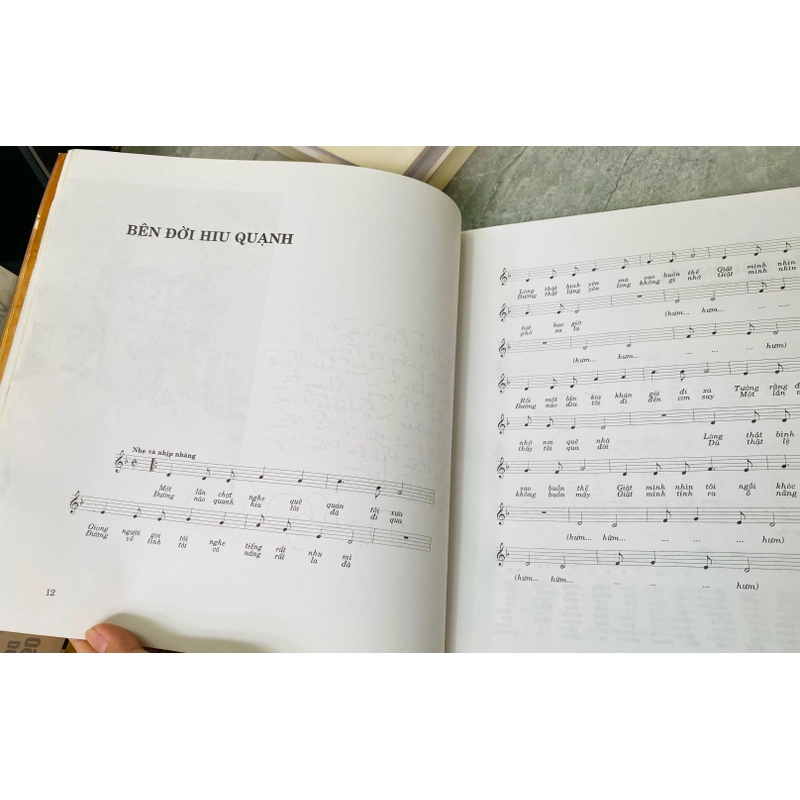 BÊN ĐỜI HIU QUẠNH
Nhẹ và nhịp nhàng
Một lần chợt nghe quê quán tôi xưa
Đường nào quạnh hiu tôi đã đi qua
Giọng người gọi tôi nghe tiếng rất nhu mì
Đường về tình tôi có nắng rất la đà
12
Lòng thật bình yên mà sao buồn thế Giật mình nhìn
Đường thật lặng yên lòng không gì nhớ Giật mình nhìn
hát bao giờ (hưm... hưm...
phố xa lạ
(hưm... hưm... ... ... hưm)
Rồi một lần kia khăn gói đi xa Tưởng rằng đ
Đường nào dìu tôi đi đến cơn say Một lần n
nhớ nơi quê nhà Lòng thật bình
thấy tôi qua đời Dù thật lệ
sao buồn thế Giật mình nhìn tôi ngồi khóc
không buồn mấy Giật mình tỉnh ra ô nắng
(hưm... hừm... ... ... ... hưm
(hưm... hừm... ... ... ... hưm)